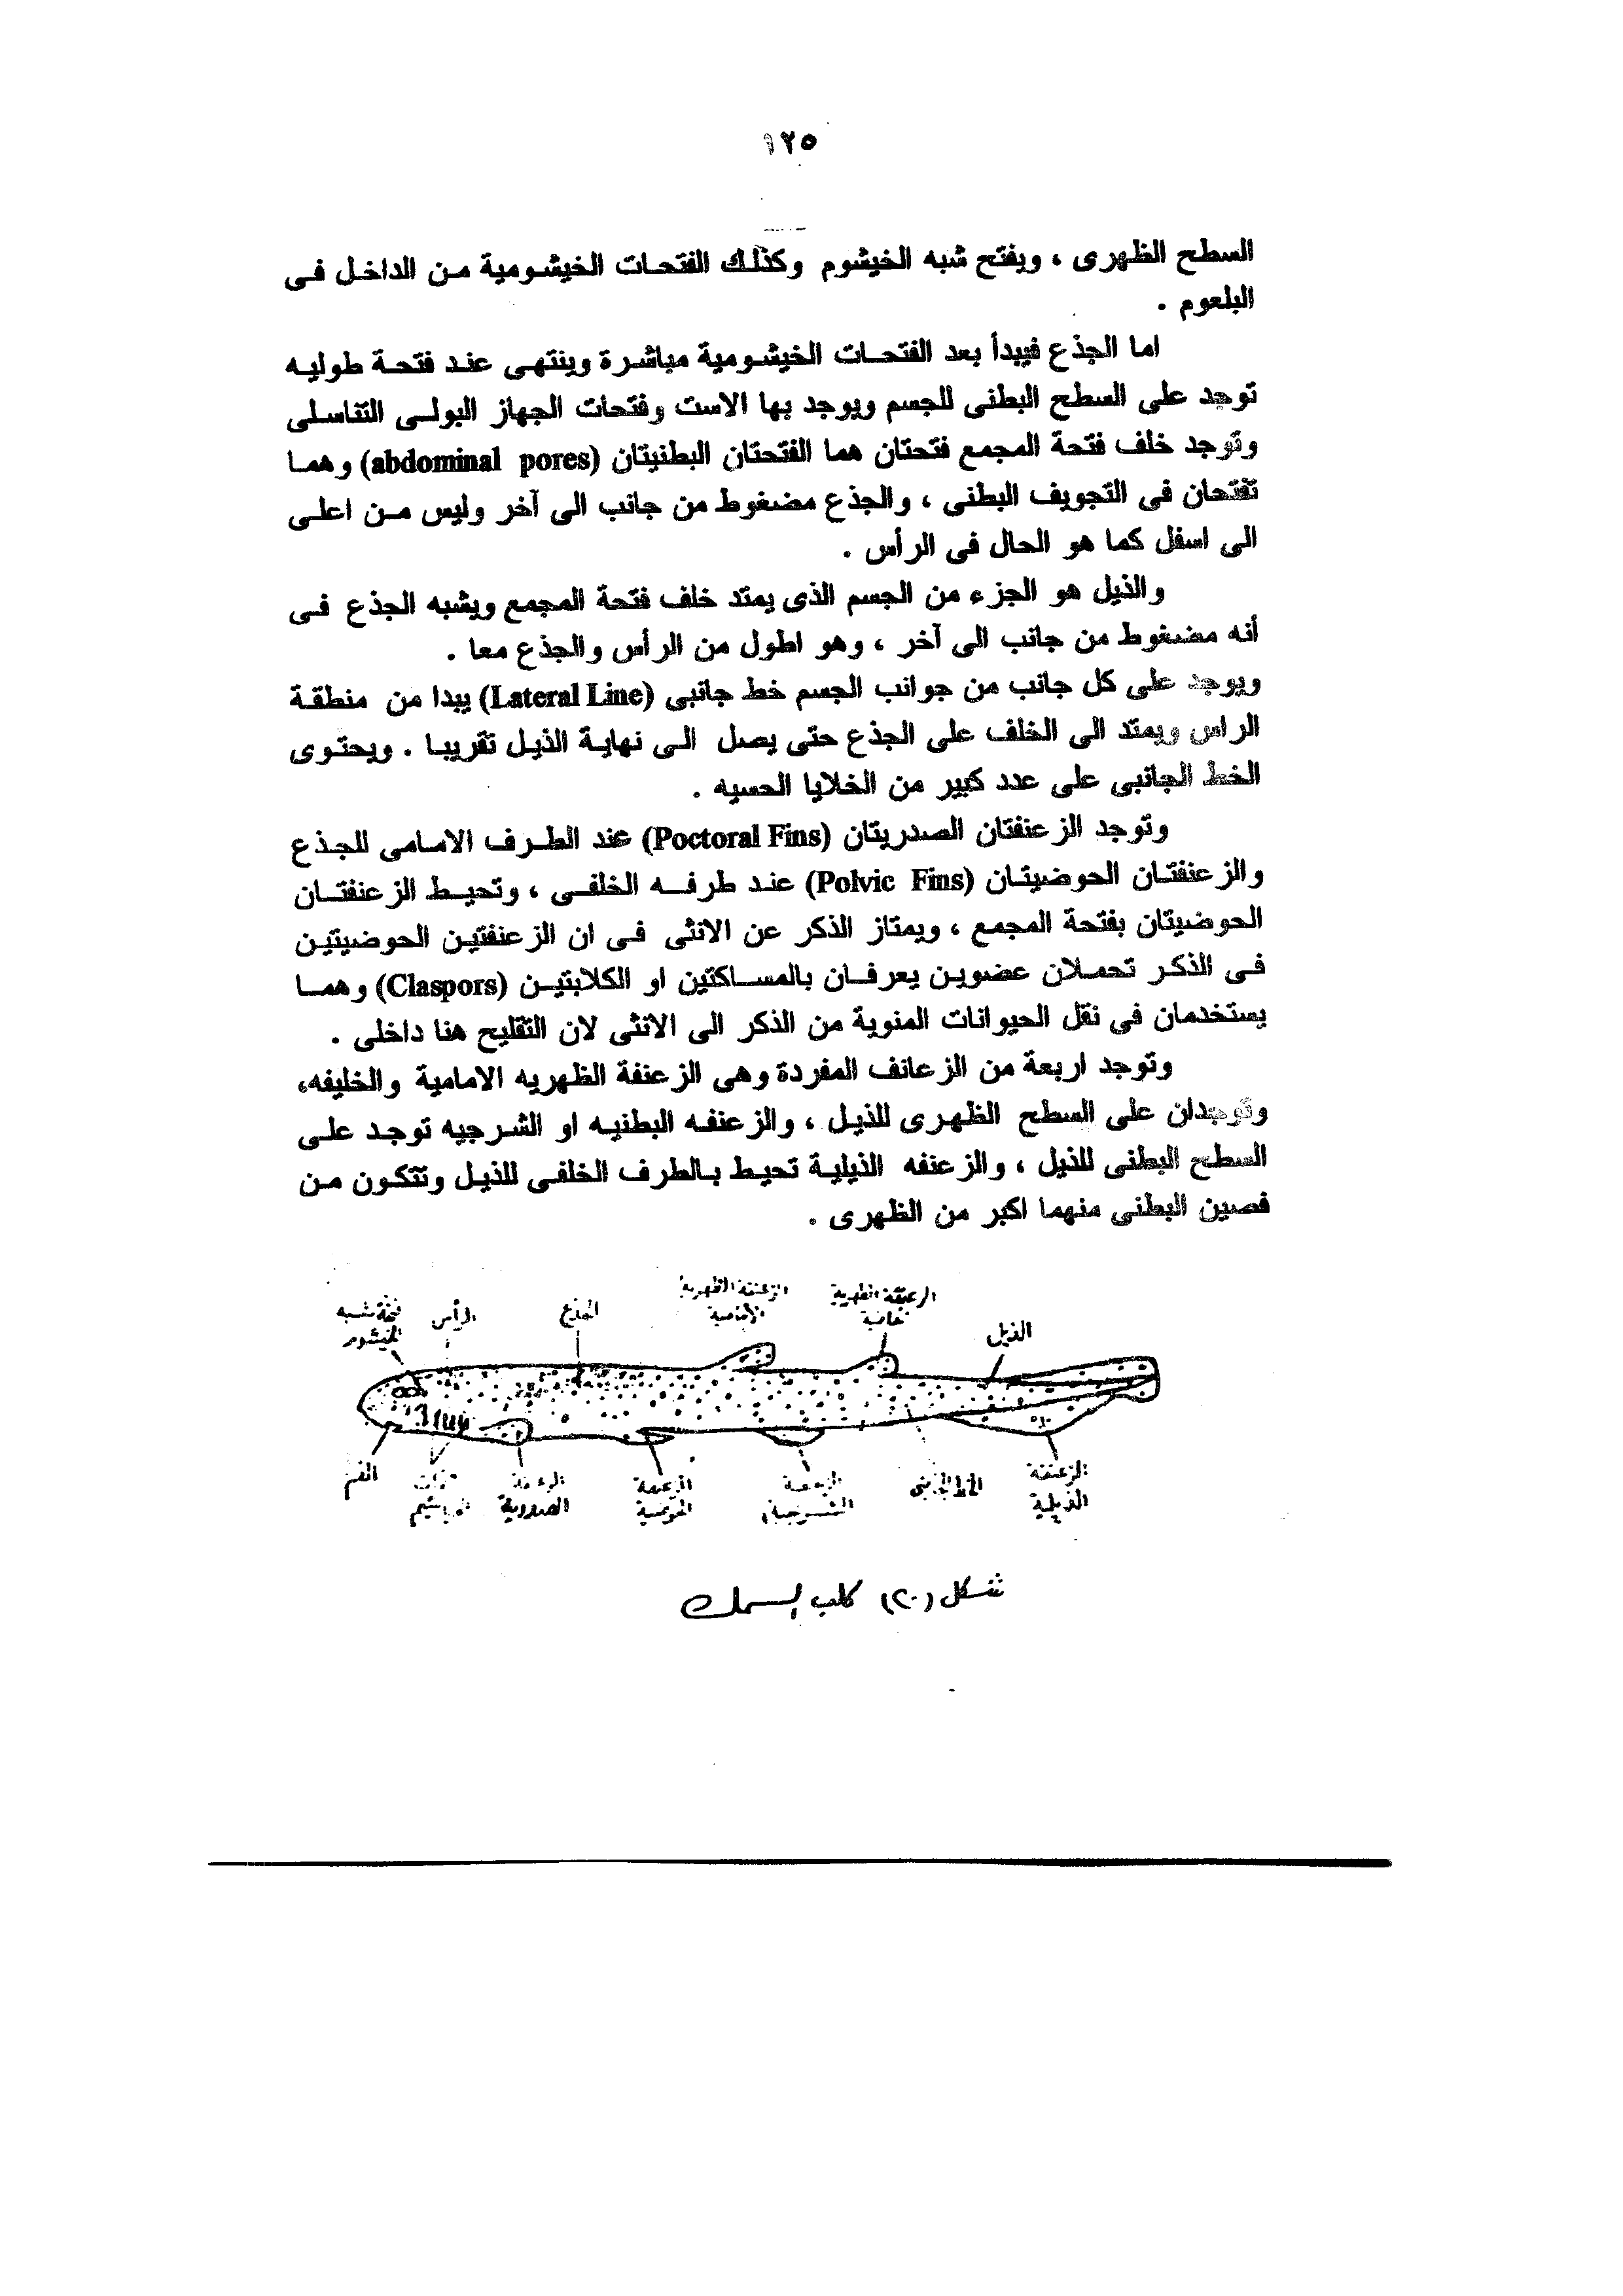 ١٢٥
السطح الظهرى ، ويفتح شبه الخيشوم وكذلك الفتحات الخيشومية من الداخل فى
البلعوم .
اما الجذع فيبدأ بعد الفتحات الخيشومية مباشرة وينتهى عند فتحة طوليه
توجد على السطح البطنى للجسم ويوجد بها الاست وفتحات الجهاز البولى التناسلى
وتوجد خلف فتحة المجمع فتحتان هما الفتحتان البطنيتان (abdominal pores) وهما
تفتحان فى التجويف البطنى ، والجذع مضغوط من جانب الى آخر وليس من اعلى
الى اسفل كما هو الحال فى الرأس .
والذيل هو الجزء من الجسم الذى يمتد خلف فتحة المجمع ويشبه الجذع فى
أنه مضغوط من جانب الى آخر ، وهو اطول من الرأس والجذع معا .
ويوجد على كل جانب من جوانب الجسم خط جانبى (Lateral Line) يبدا من منطقة
الراس ويمتد الى الخلف على الجذع حتى يصل الى نهاية الذيل تقريبا . ويحتوى
الخط الجانبى على عدد كبير من الخلايا الحسيه .
وتوجد الزعنفتان الصدريتان (Poctoral Fins) عند الطرف الامامى للجذع
والزعنفتان الحوضيتان (Polvic Fins) عند طرفه الخلفى ، وتحيط الزعنفتان
الحوضيتان بفتحة المجمع ، ويمتاز الذكر عن الانثى فى ان الزعنفتين الحوضيتين
فى الذكر تحملان عضوين يعرفان بالمساكتين او الكلابتين (Claspors) وهما
يستخدمان فى نقل الحيوانات المنوية من الذكر الى الانثى لان التقليح هنا داخلى .
وتوجد اربعة من الزعانف المفردة وهى الزعنفة الظهريه الامامية والخليفه،
وتوجدان على السطح الظهرى للذيل ، والزعنفه البطنيه او الشرجيه توجد على
السطح البطنى للذيل ، والزعنفه الذيلية تحيط بالطرف الخلفى للذيل وتتكون من
فصين البطنى منهما اكبر من الظهرى .
الزعنفة الظهرية
الزعنفة الظهرية
الأمامية
فتحة شبه
الخيشوم
الرأس
الجذع
الذيل
الفم
الصدرية
الخط الجانبى
الزعنفة
الذيلية
شكل (٢٠) كلب السمك